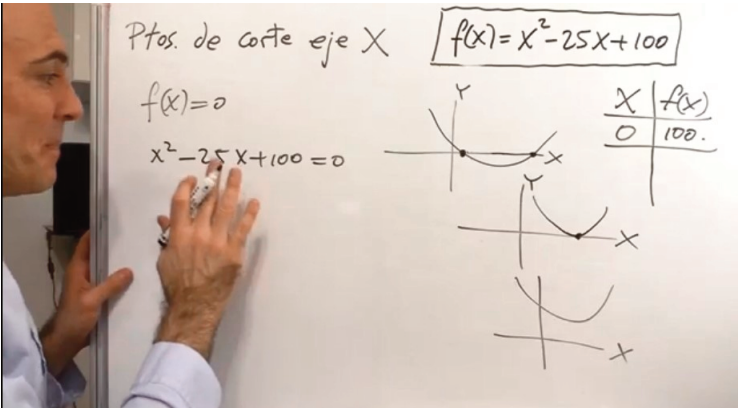 Ptos. de corte eje X
f(x)=x²-25x+100
f(x)=0
x²-25x+100=0
Y
X
X f(x)
0 100.
Y
X
X